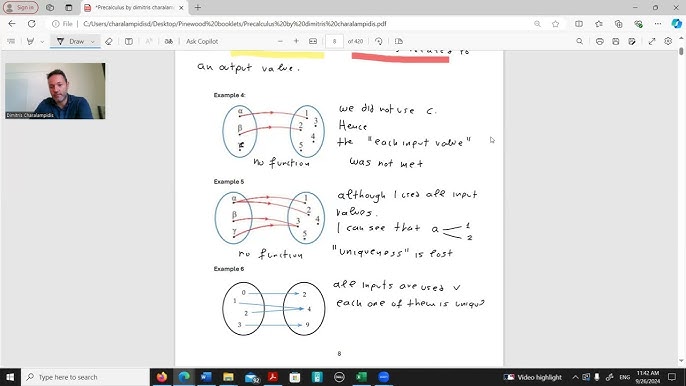 Sign in
*Precalculus by dimitris charalam
C:/Users/charalampidisd/Desktop/Pinewood%20booklets/Precalculus%20by%20dimitris%20charalampidis.pdf
Ask Copilot
8 of 420
Dimitris Charalampidis
an output value.
Example 4:
α
β
1
2
3
4
5
no function
we did not use c.
Hence
the "each input value"
was not met
Example 5
α
β
γ
1
2
3
4
5
no function
although I used all input
values.
I can see that a
1
2
"uniqueness" is lost
Example 6
0
1
2
3
2
4
9
all inputs are used v
each one of them is uniqu
8
Type here to search
Video highlight
ENG
11:42 AM
9/26/2024